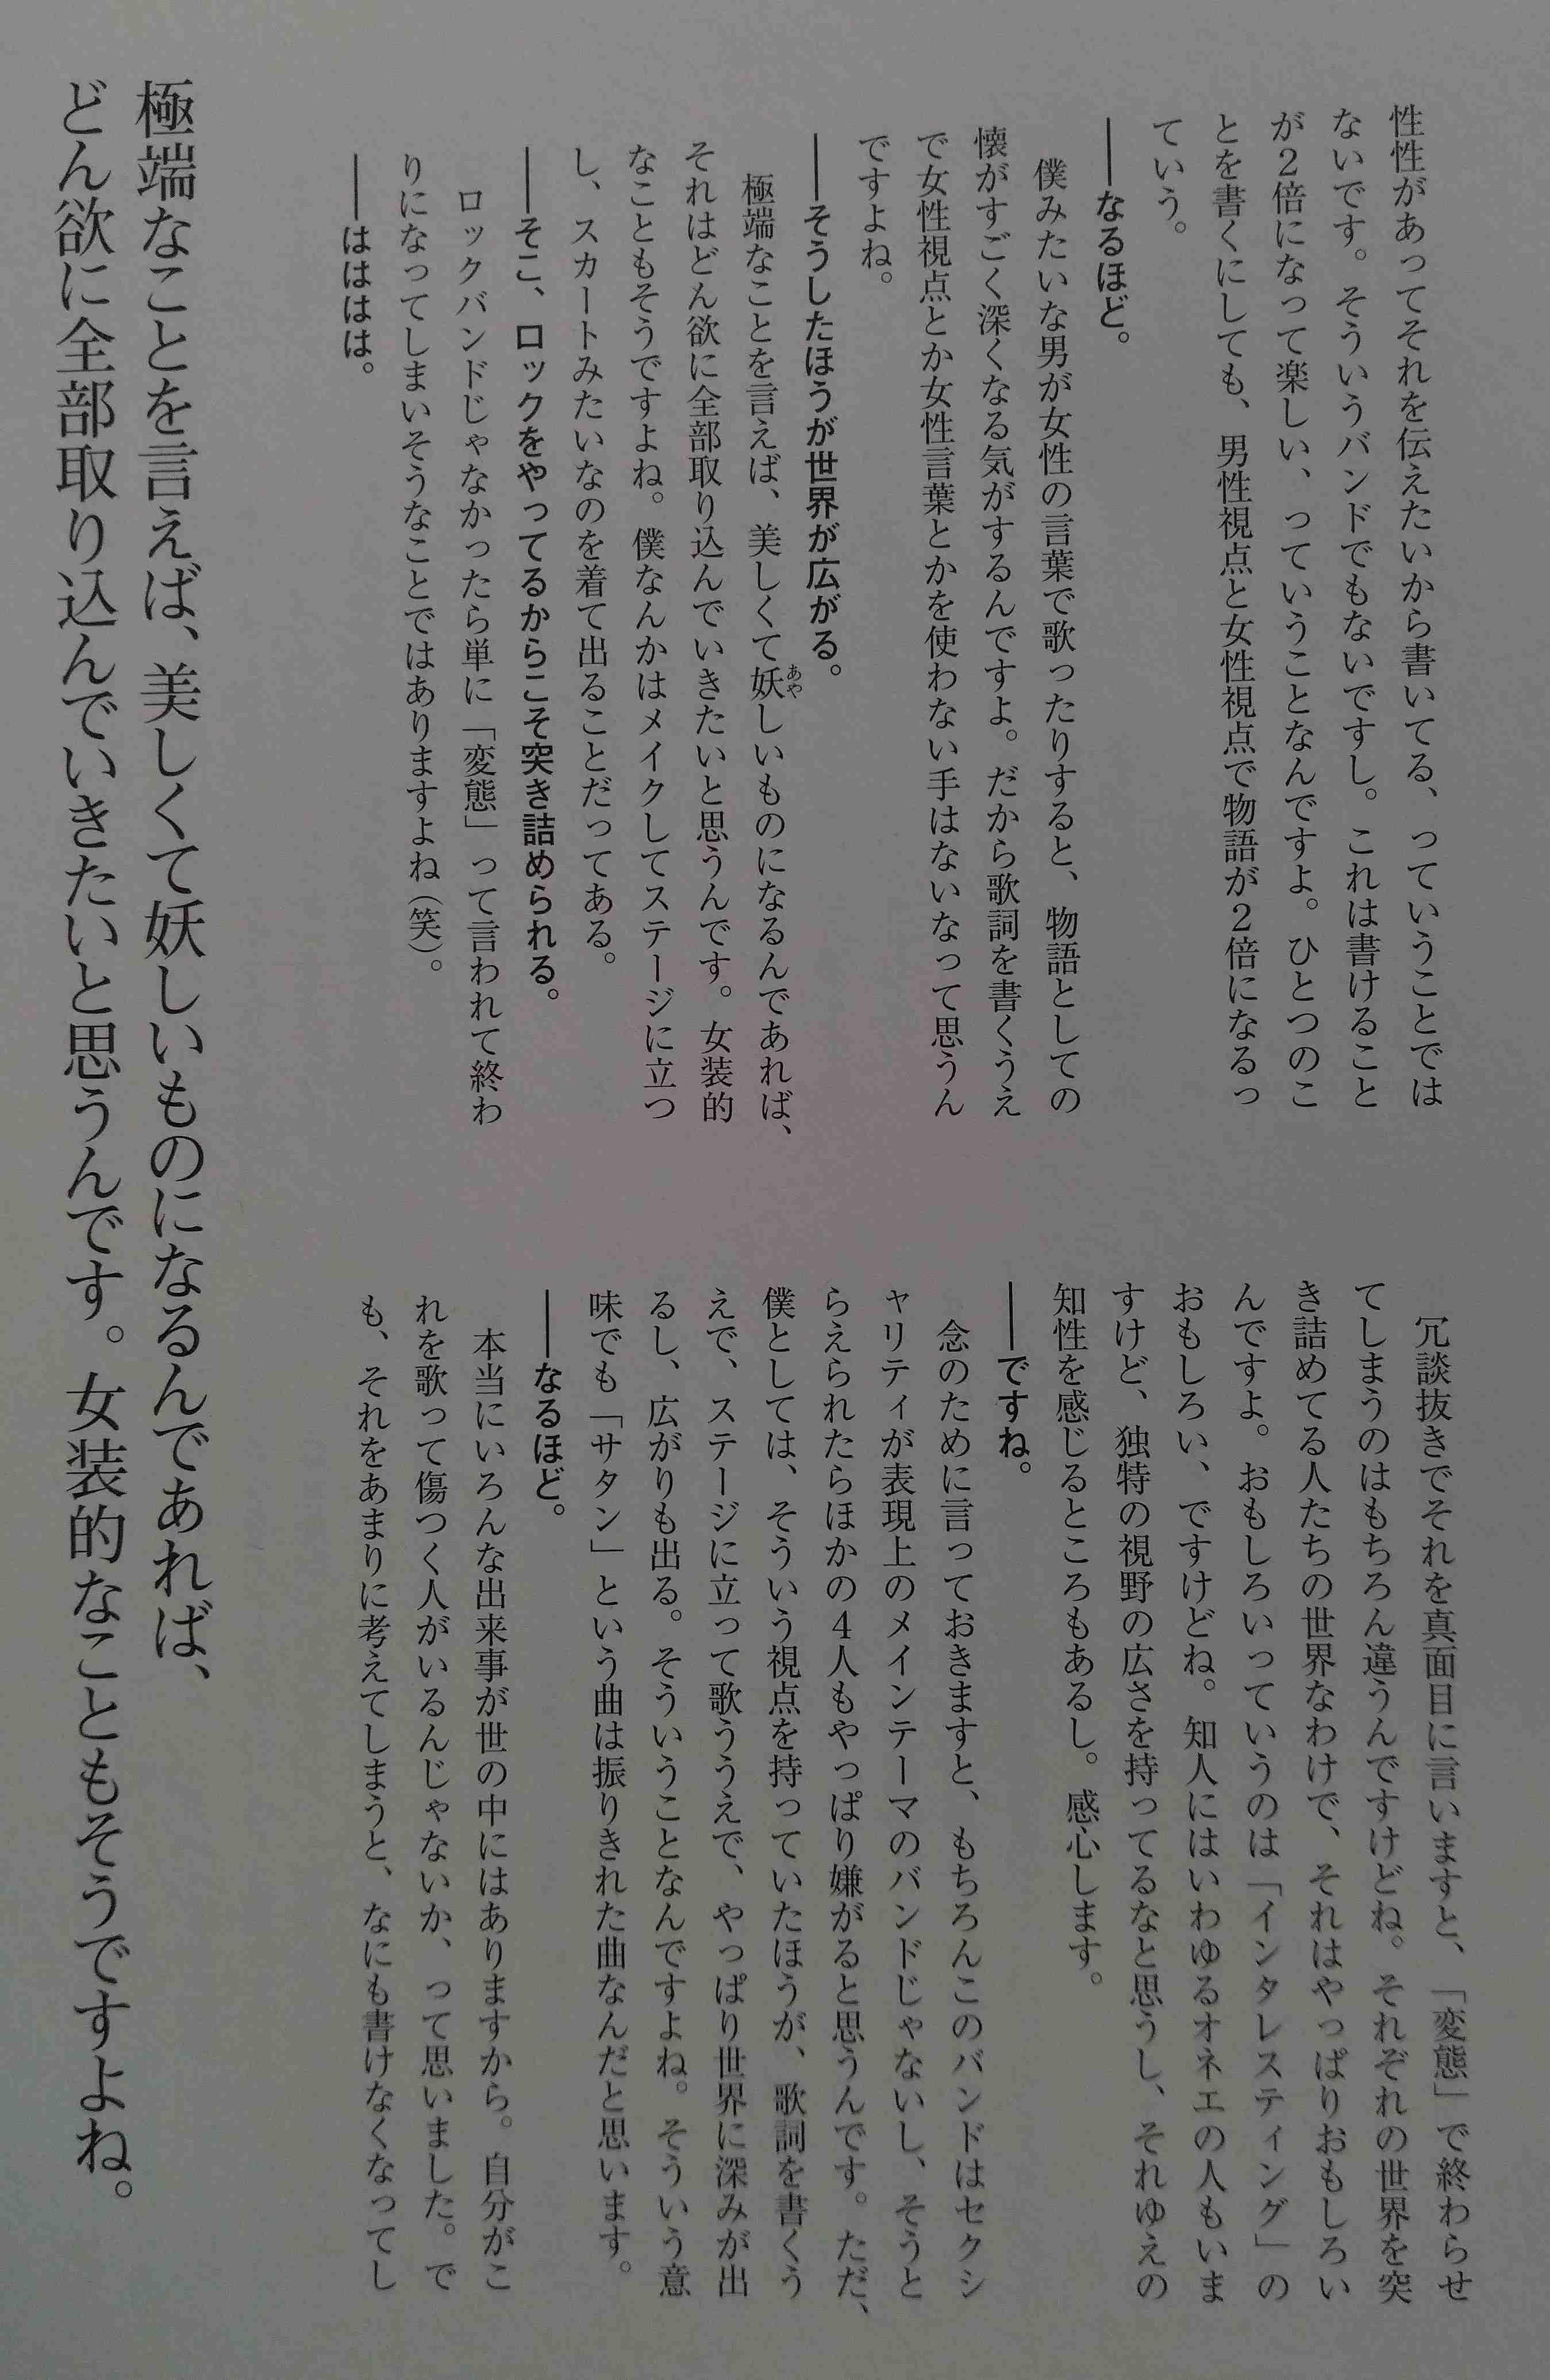 性性があってそれを伝えたいから書いてる、っていうことでは
ないです。そういうバンドでもないですし。これは書けること
が2倍になって楽しい、っていうことなんですよ。ひとつのこ
とを書くにしても、男性視点と女性視点で物語が2倍になるっ
ていう。
──なるほど。
僕みたいな男が女性の言葉で歌ったりすると、物語としての
懐がすごく深くなる気がするんですよ。だから歌詞を書くうえ
で女性視点とか女性言葉とかを使わない手はないなって思うん
ですよね。
──そうしたほうが世界が広がる。
極端なことを言えば、美しくて妖しいものになるんであれば、
あや
それはどん欲に全部取り込んでいきたいと思うんです。女装的
なこともそうですよね。僕なんかはメイクしてステージに立つ
し、スカートみたいなのを着て出ることだってある。
──そこ、ロックをやってるからこそ突き詰められる。
ロックバンドじゃなかったら単に「変態」って言われて終わ
りになってしまいそうなことではありますよね(笑)。
──はははは。
冗談抜きでそれを真面目に言いますと、「変態」で終わらせ
てしまうのはもちろん違うんですけどね。それぞれの世界を突
き詰めてる人たちの世界なわけで、それはやっぱりおもしろい
んですよ。おもしろいっていうのは「インタレスティング」の
おもしろい、ですけどね。知人にはいわゆるオネエの人もいま
すけど、独特の視野の広さを持ってるなと思うし、それゆえの
知性を感じるところもあるし。感心します。
──ですね。
念のために言っておきますと、もちろんこのバンドはセクシ
ャリティが表現上のメインテーマのバンドじゃないし、そうと
らえられたらほかの4人もやっぱり嫌がると思うんです。ただ、
僕としては、そういう視点を持っていたほうが、歌詞を書くう
えで、ステージに立って歌ううえで、やっぱり世界に深みが出
るし、広がりも出る。そういうことなんですよね。そういう意
味でも「サタン」という曲は振りきれた曲なんだと思います。
──なるほど。
本当にいろんな出来事が世の中にはありますから。自分がこ
れを歌って傷つく人がいるんじゃないか、って思いました。で
も、それをあまりに考えてしまうと、なにも書けなくなってし
極端なことを言えば、美しくて妖しいものになるんであれば、
どん欲に全部取り込んでいきたいと思うんです。女装的なこともそうですよね。